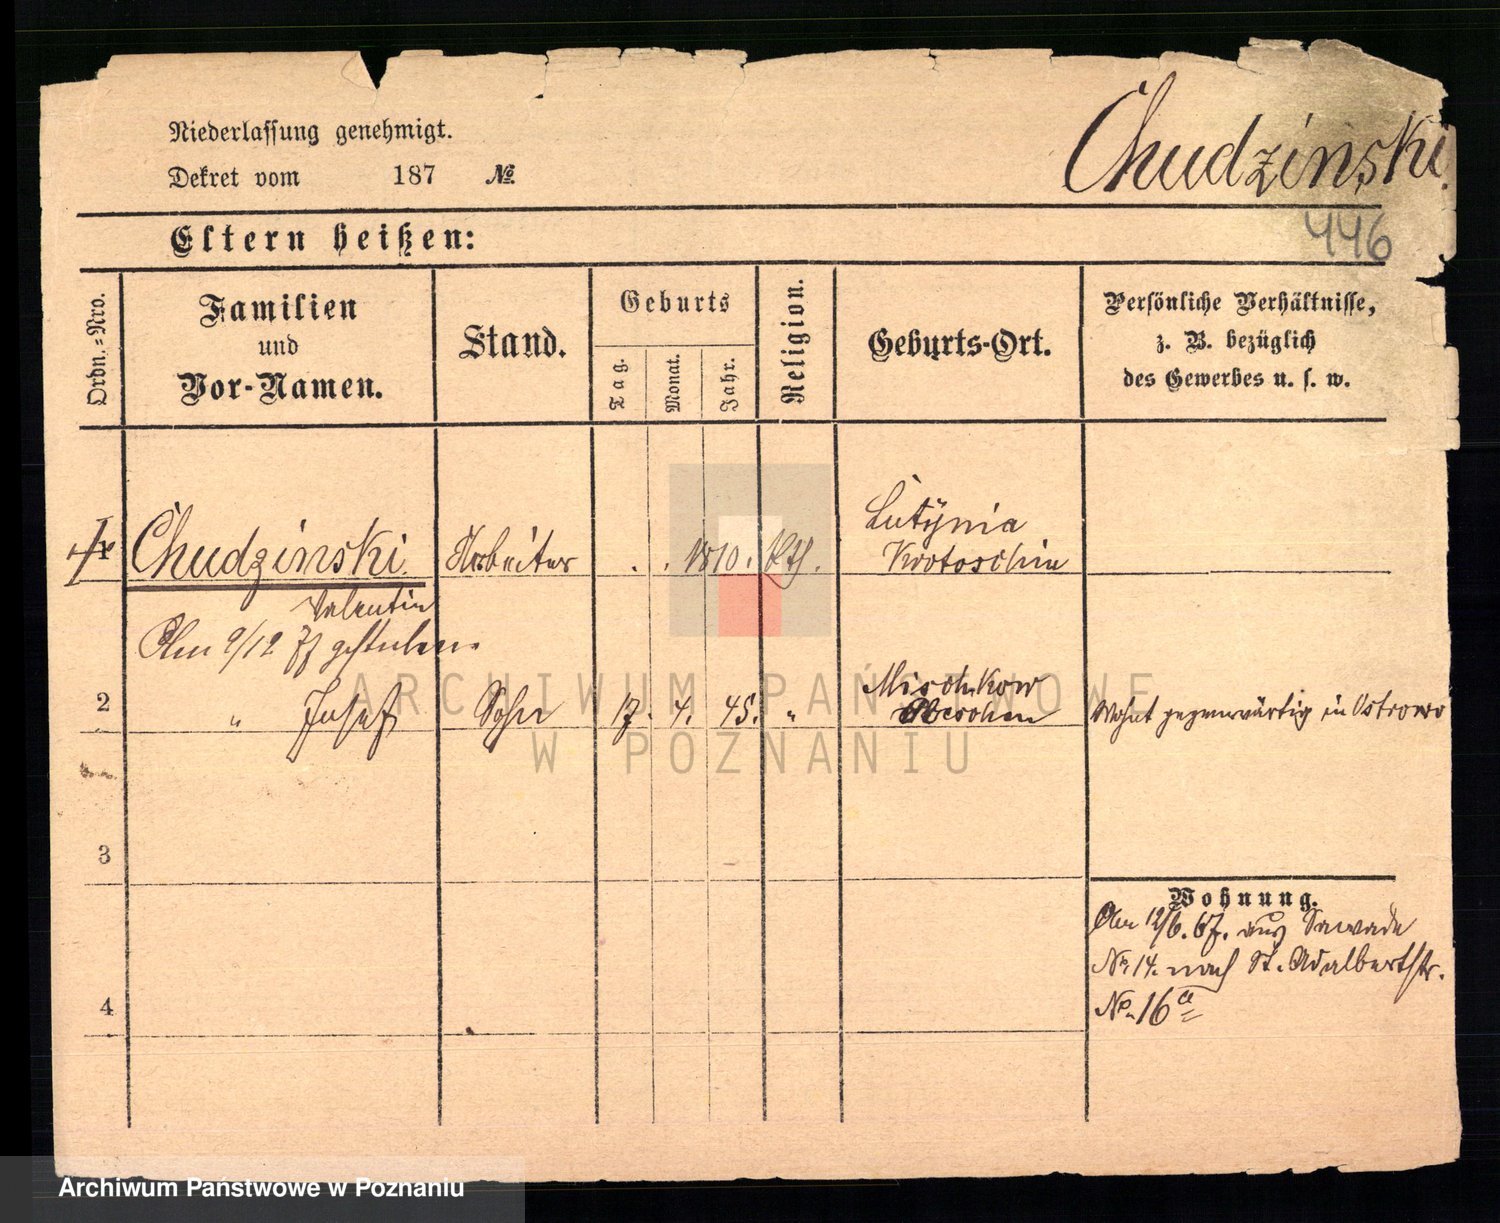 Niederlassung genehmigt.
Dekret vom 187 №
Chudzinski.
446
Eltern heißen:
Ordn.=Nro.
Familien
und
Vor-Namen.
Stand.
Geburts
Tag.
Monat.
Jahr.
Religion.
Geburts-Ort.
Persönliche Verhältnisse,
z. B. bezüglich
des Gewerbes u. s. w.
Lutynia
Chudzinski. Arbeiter . . 1810. Kth. Krotoschin
Valentin
Am 9/12 77 gestorben.
Mischkow
2 " Josef Sohn 17. 4. 45. " Pleschen Wohnt gegenwärtig in Ostrowo
3
Wohnung.
Am 12/6. 67. aus Sawade
№ 14. nach St. Adalbertstr.
4
№ 16 a
ARCHIWUM PAŃSTWOWE
W POZNANIU
Archiwum Państwowe w Poznaniu